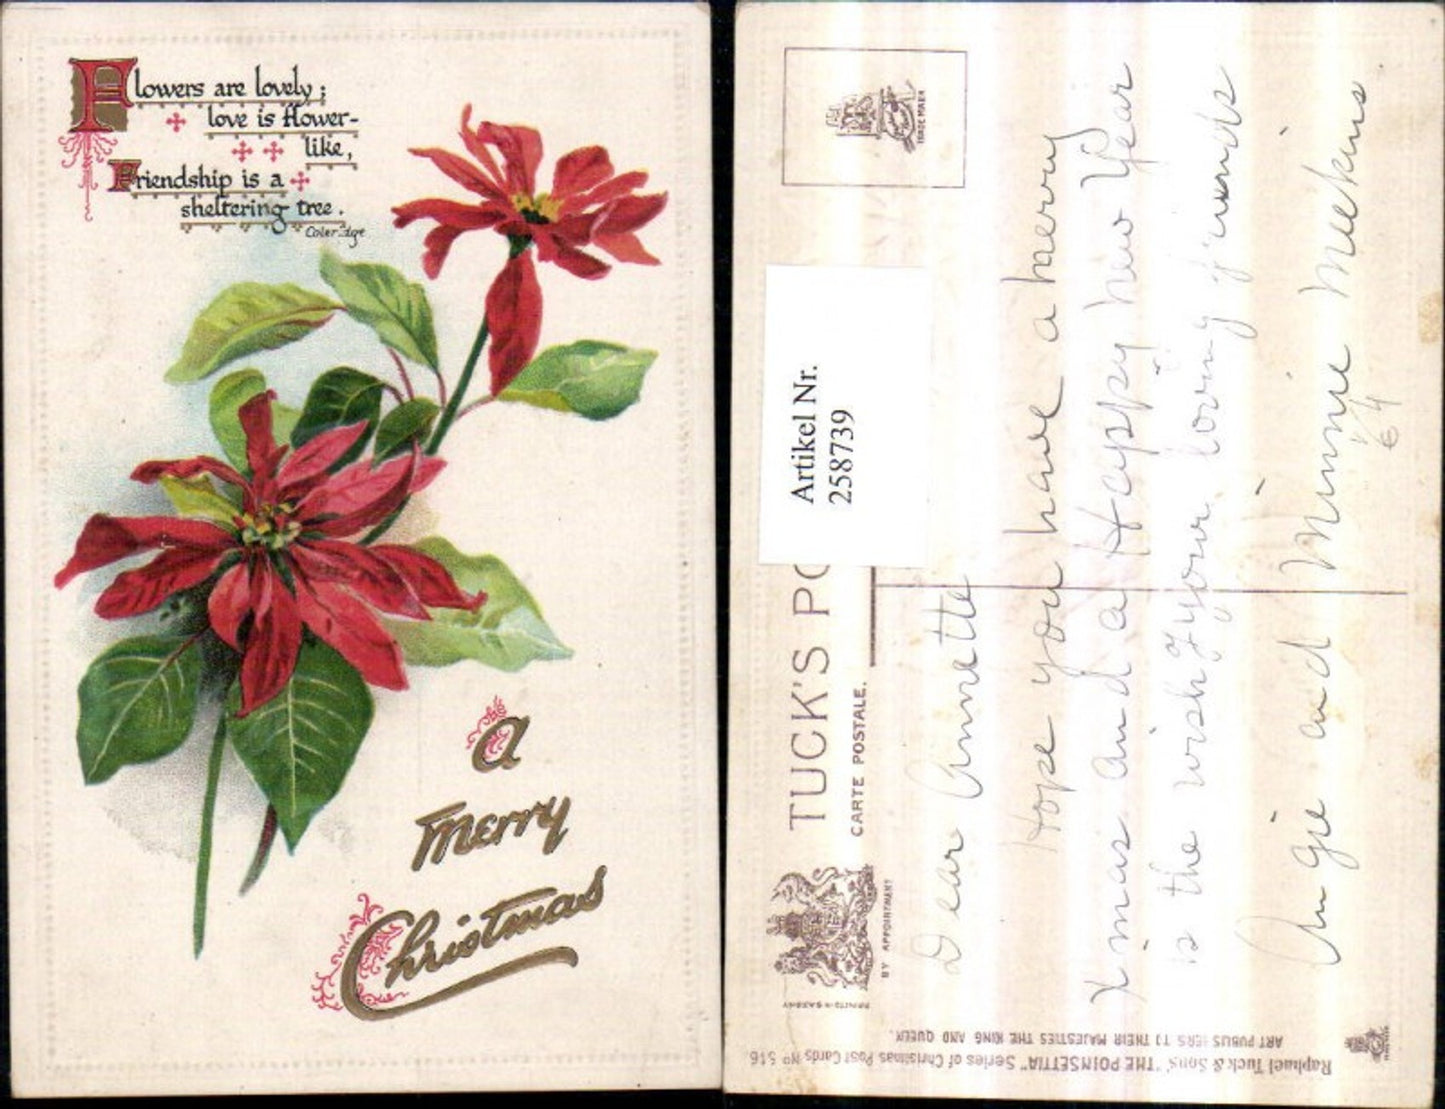 Flowers are lovely;
love is flower-
like,
Friendship is a
sheltering tree.
Coleridge
a
Merry
Christmas
TRADE MARK
Artikel Nr.
258739
TUCK'S PO
CARTE POSTALE.
BY APPOINTMENT
PRINTED IN SAXONY
Dear Annette
Hope you have a merry
Xmas and a Happy New Year
is the wish of your loving friends
Angie and Minnie Meekins
€ 4
Raphael Tuck & Sons' "THE POINSETTIA" Series of Christmas Post Cards No 516.
ART PUBLISHERS TO THEIR MAJESTIES THE KING AND QUEEN.